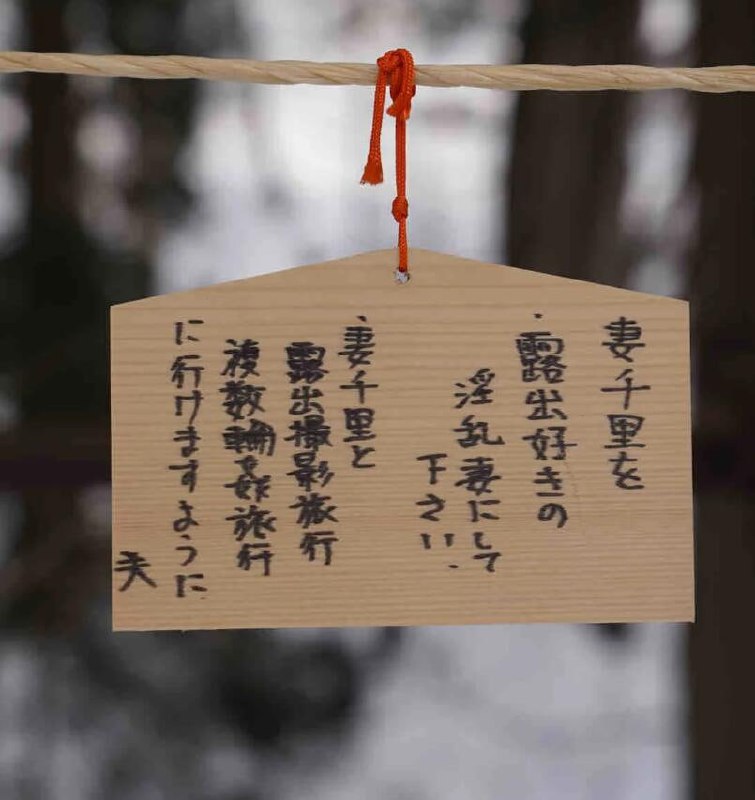 妻千里を
・露出好きの
淫乱妻にして
下さい.
・妻千里と
露出撮影旅行
複数輪姦旅行
に行けますように
夫